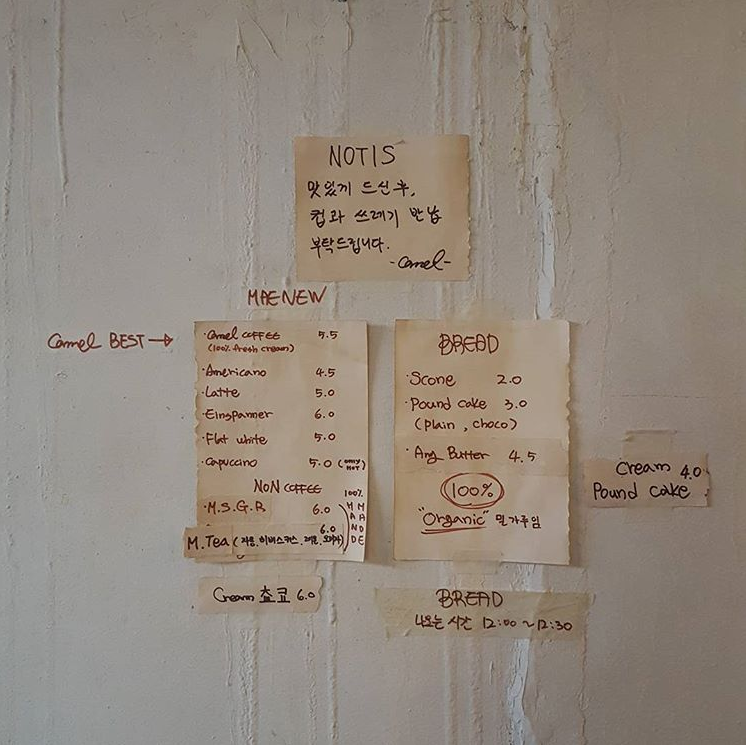 NOTIS
맛있께 드신 후,
컵과 쓰레기 반납
부탁드립니다.
-Camel-
MAENEW
Camel BEST →
·Camel COFFEE 5.5
(100% fresh cream)
·Americano 4.5
·Latte 5.0
·Einspanner 6.0
·Flat white 5.0
·Capuccino 5.0 (only HOT)
NON COFFEE
·M.S.G.R 6.0
6.0
M.Tea (자몽.히비스커스.레몬.오미자)
100%
HAND
MADE
Cream 쵸코 6.0
BREAD
·Scone 2.0
·Pound cake 3.0
(plain, choco)
·Ang Butter 4.5
100%
"Organic" 밀가루임
Cream 4.0
Pound cake
BREAD
나오는 시간 12:00 ~ 12:30